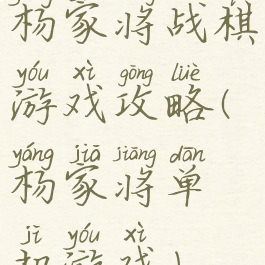 杨家将战棋
yóu xì gōng lüè
游戏攻略(
yáng jiā jiāng dān
杨家将单
jī yóu xì
机游戏)